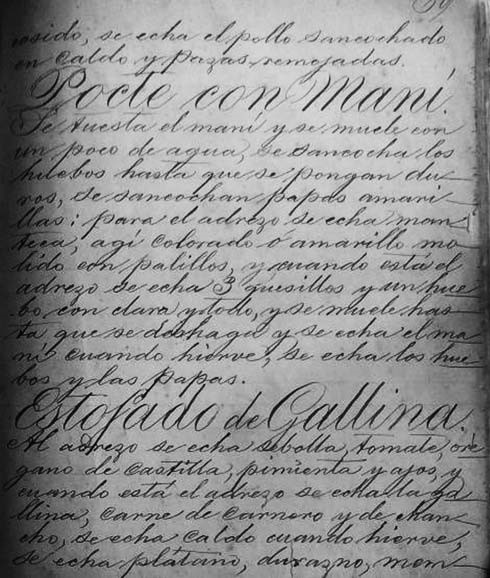 cosido, se echa el pollo sancochado
en caldo y pazas remojadas.
Pocte con Maní.
Se tuesta el maní y se muele con
un poco de agua, se sancocha los
huebos hasta que se pongan du-
ros, se sancochan papas amari-
llas; para el adrezo se echa man-
teca, agí colorado ó amarillo mo-
lido con palillos, y cuando está el
adrezo se echa 3 quesillos y un hue-
bo con clara y todo, y se muele has-
ta que se deshaga y se echa el ma-
ní cuando hierve, se echa los hue-
bos y las papas.
Estofado de Gallina.
Al adrezo se echa sebolla, tomate, oré-
gano de Castilla, pimienta y ajos, y
cuando está el adrezo se echa la ga-
llina, carne de carnero y de chan-
cho, se echa caldo cuando hierve,
se echa plátano, durazno, mem-